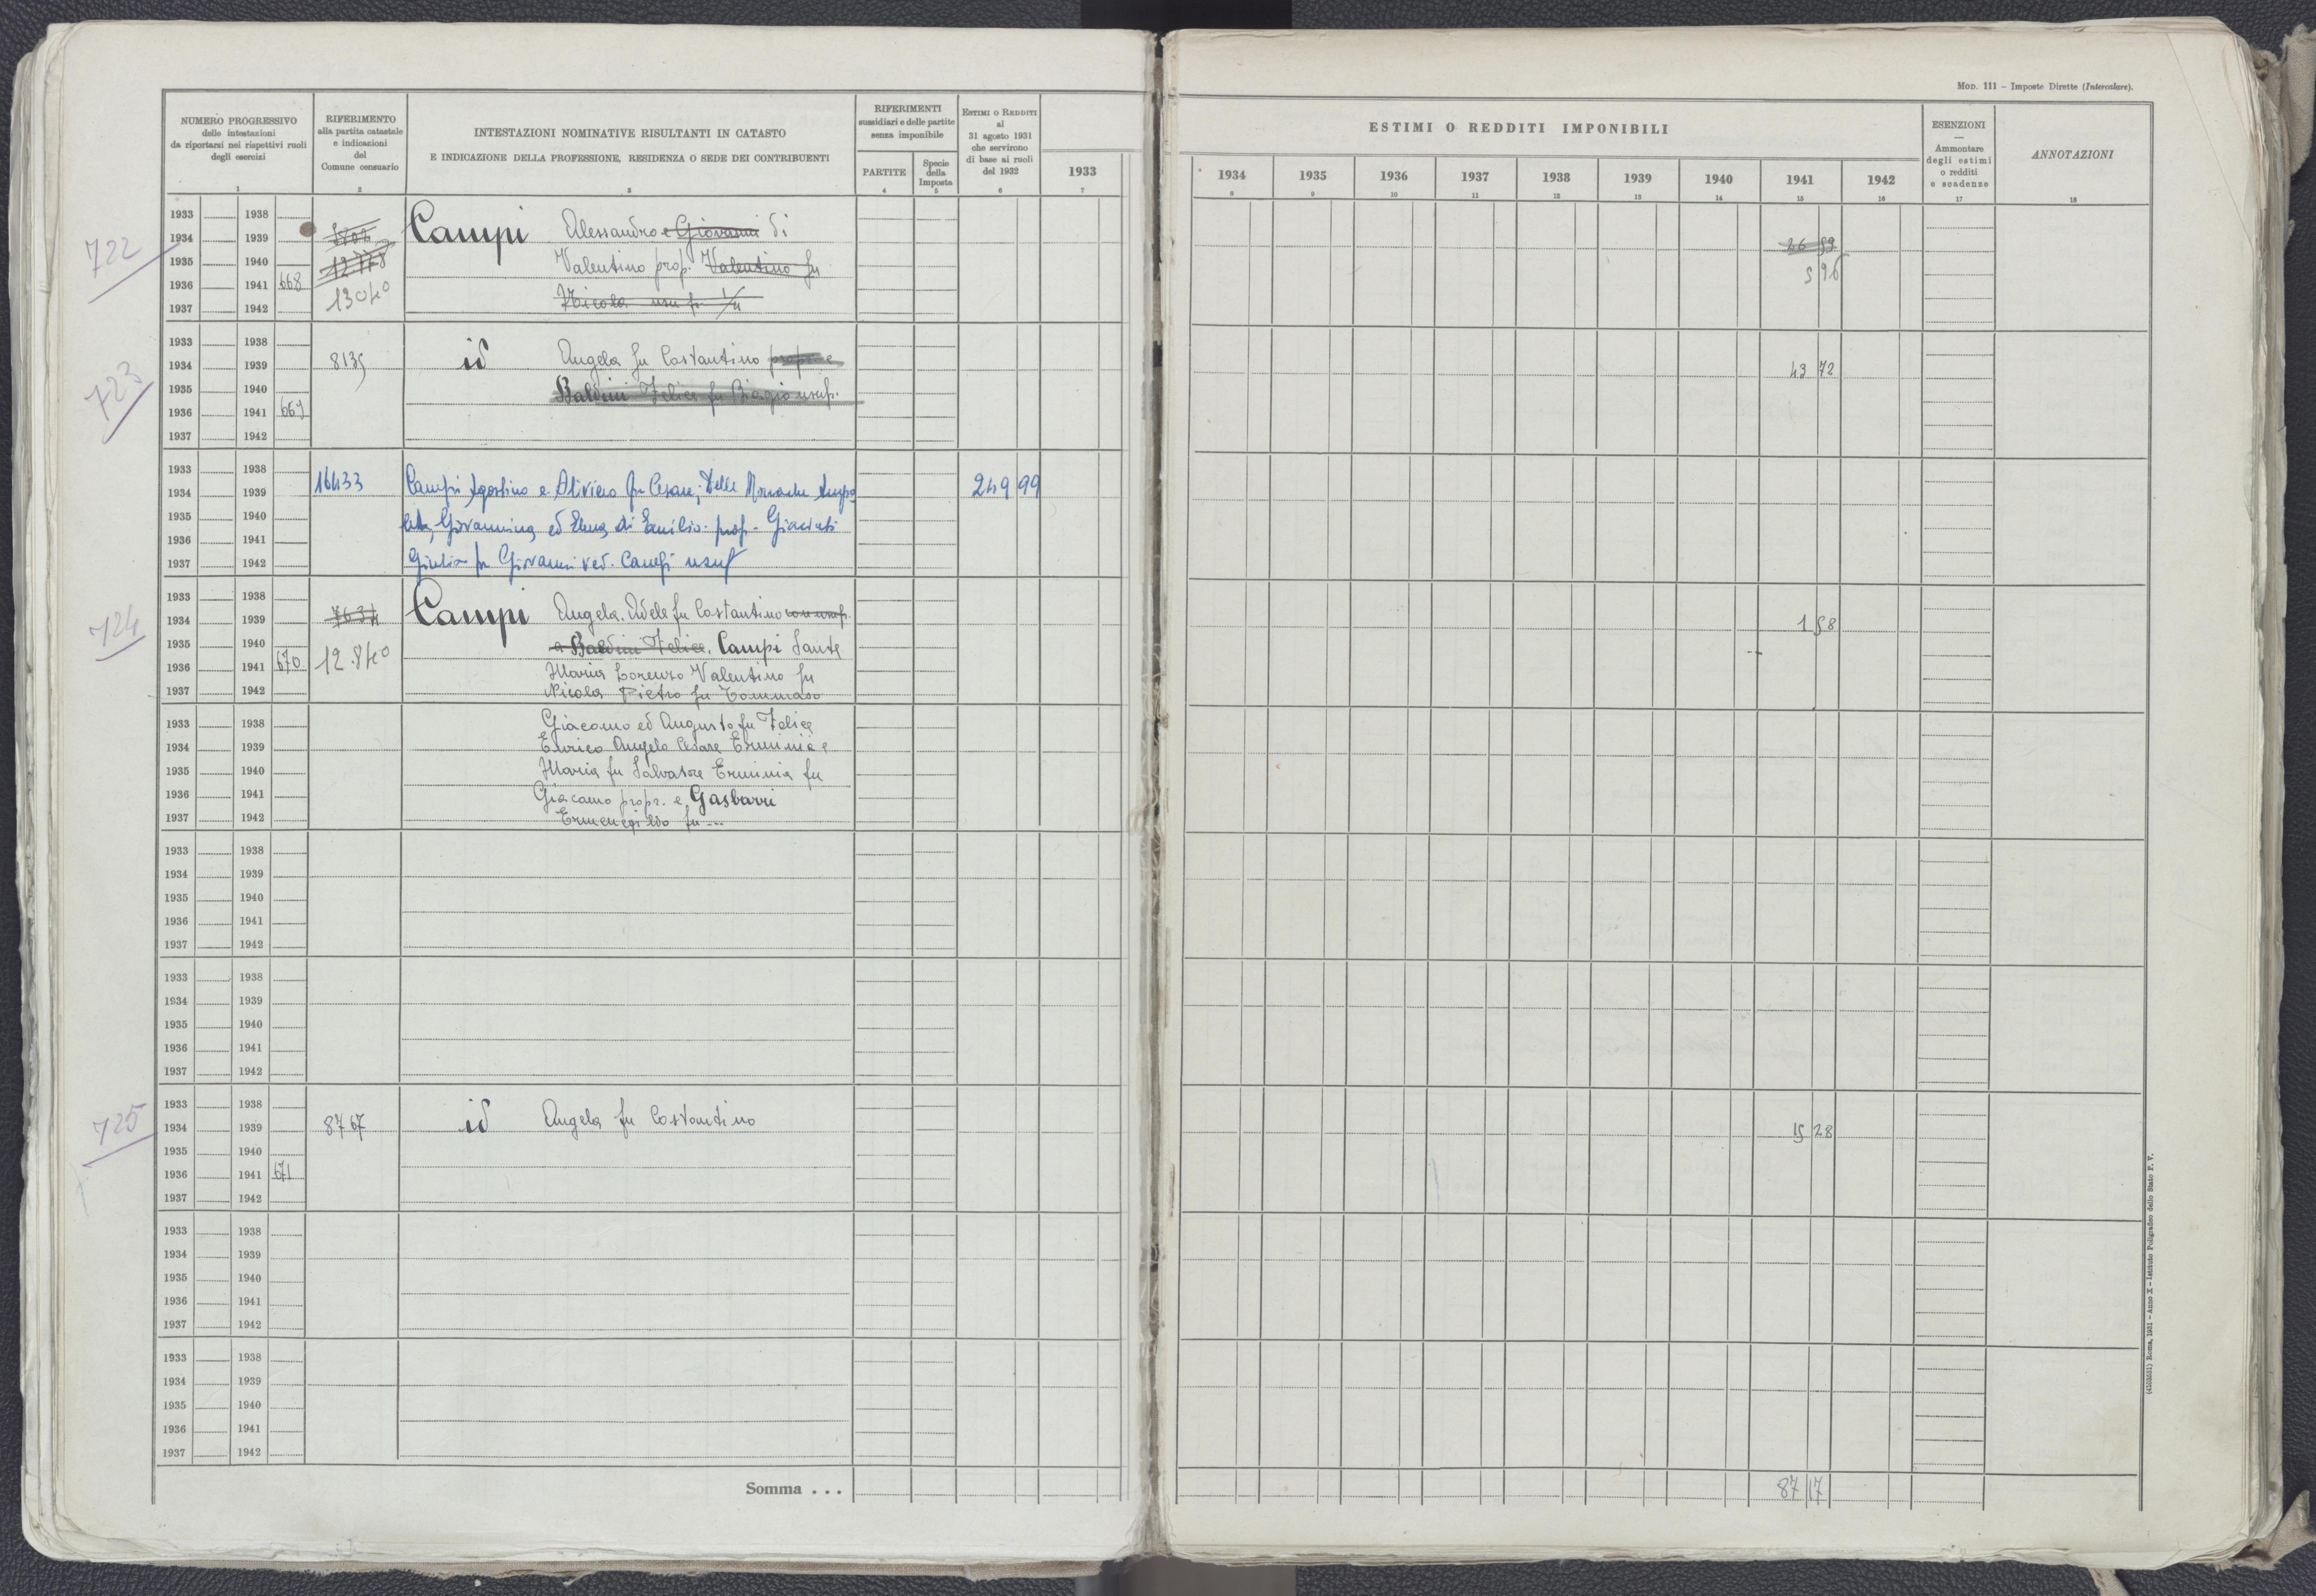 MOD. 111 – Imposte Dirette (Intercalare).
NUMERO PROGRESSIVO
delle intestazioni
da riportarsi nei rispettivi ruoli
degli esercizi
1
RIFERIMENTO
alla partita catastale
e indicazioni
del
Comune censuario
2
INTESTAZIONI NOMINATIVE RISULTANTI IN CATASTO
E INDICAZIONE DELLA PROFESSIONE, RESIDENZA O SEDE DEI CONTRIBUENTI
3
RIFERIMENTI
sussidiari e delle partite
senza imponibile
PARTITE
4
Specie
della
Imposta
5
ESTIMI O REDDITI
al
31 agosto 1931
che servirono
di base ai ruoli
del 1932
6
1933
7
ESTIMI O REDDITI IMPONIBILI
1934 1935 1936 1937 1938 1939 1940 1941 1942
8 9 10 11 12 13 14 15 16
ESENZIONI
—
Ammontare
degli estimi
o redditi
e scadenze
17
ANNOTAZIONI
18
722
1933 1938
1934 1939 Campi Alessandro e Giovanni di 26 59
1935 1940 12778 Valentino prop. Valentino fu 5 96
1936 1941 668 13040 Nicola usuf.
1937 1942
723
1933 1938
1934 1939 8135 id Angela fu Costantino propr. e 43 72
1935 1940 Baldini Felice fu Biagio usuf.
1936 1941 669
1937 1942
1933 1938
1934 1939 16433 Campi Agostino e Oliviero fu Cesare; Delle Monache 249 99
1935 1940 Giovannina ed Elena di Emilio. prop. Giacinti
1936 1941
1937 1942 Giulia fu Giovanni ved. Campi usuf
724
1933 1938
1934 1939 7634 Campi Angela. Adele fu Costantino con usuf. 1 58
1935 1940 a Baldini Felice. Campi Sante
1936 1941 670 12.840 Maria Lorenzo Valentino fu
1937 1942 Nicola Pietro fu Tommaso
1933 1938 Giacomo ed Augusto fu Felice
1934 1939 Enrico Angelo Cesare Erminia e
1935 1940 Maria fu Salvatore Erminia fu
1936 1941 Giacomo propr. e Gasbarri
1937 1942 Ermenegildo fu ---
1933 1938
1934 1939
1935 1940
1936 1941
1937 1942
1933 1938
1934 1939
1935 1940
1936 1941
1937 1942
725
1933 1938
1934 1939 8767 id Angela fu Costantino 15 28
1935 1940
1936 1941 671
1937 1942
1933 1938
1934 1939
1935 1940
1936 1941
1937 1942
1933 1938
1934 1939
1935 1940
1936 1941
1937 1942
Somma . . . 87 17
(4103531) Roma, 1931 – Anno X – Istituto Poligrafico dello Stato P. V.